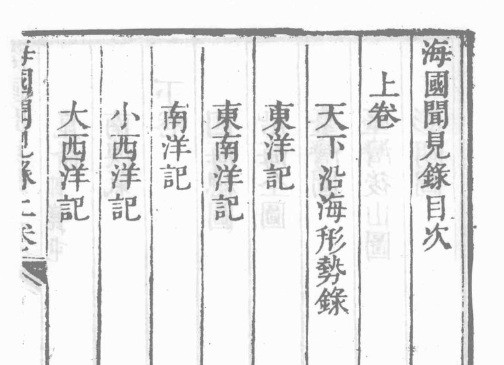 海國聞見錄目次
上卷
天下沿海形勢錄
東洋記
東南洋記
南洋記
小西洋記
大西洋記
海國聞見錄上卷